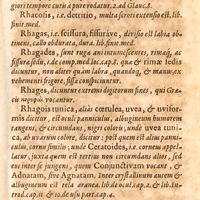 giori tempore curiò à pure rodatur. 2. ad Glauc. 8.
Rhacosis, i. e. detritio, multa scroti extensio est. lib.
finit. med.
Rhagas, i.e. scissura, fissurâve, diviso est labia ob-
tinens, callo obdurata, dura. lib. finit. med.
Rhagades, sunt rugæ ani intumescentes, rimæ, ac
fissuræ sedi, i. de comp. med. loc. cap. 8. quæ & rimæ sedis
dicuntur, non aliter quàm labra, quandoq, & manus, ex
vehementi frigore, fissa conspiciuntur.
Rhages, dicuntur extremi digitorum fines, qui Græ-
cis vocant.
Rhagois tunica, aliàs cœrulea, uvea, & uvifor-
mis dicitur, est oculi panniculus, albugineum humorem
tangens, & circundans, nigri coloris, unde uvea tuni-
ca, ab uvarum nigro colore, dicitur: est autem panni-
culus, cornu similis, unde Ceratoides, i.e. corneus appel-
latur, juxta quem est tertius non circundans alios, sed
eis inter se jungens, quem Conjunctivam vocant, &
Adnatam, sive Agnatam. Inter crystallinum autem &
albugineum est tela aranea. lib. de ocul. cap. 2. & lib. In-
trod. cap. 11. & 10. de usu part. cap. 2.